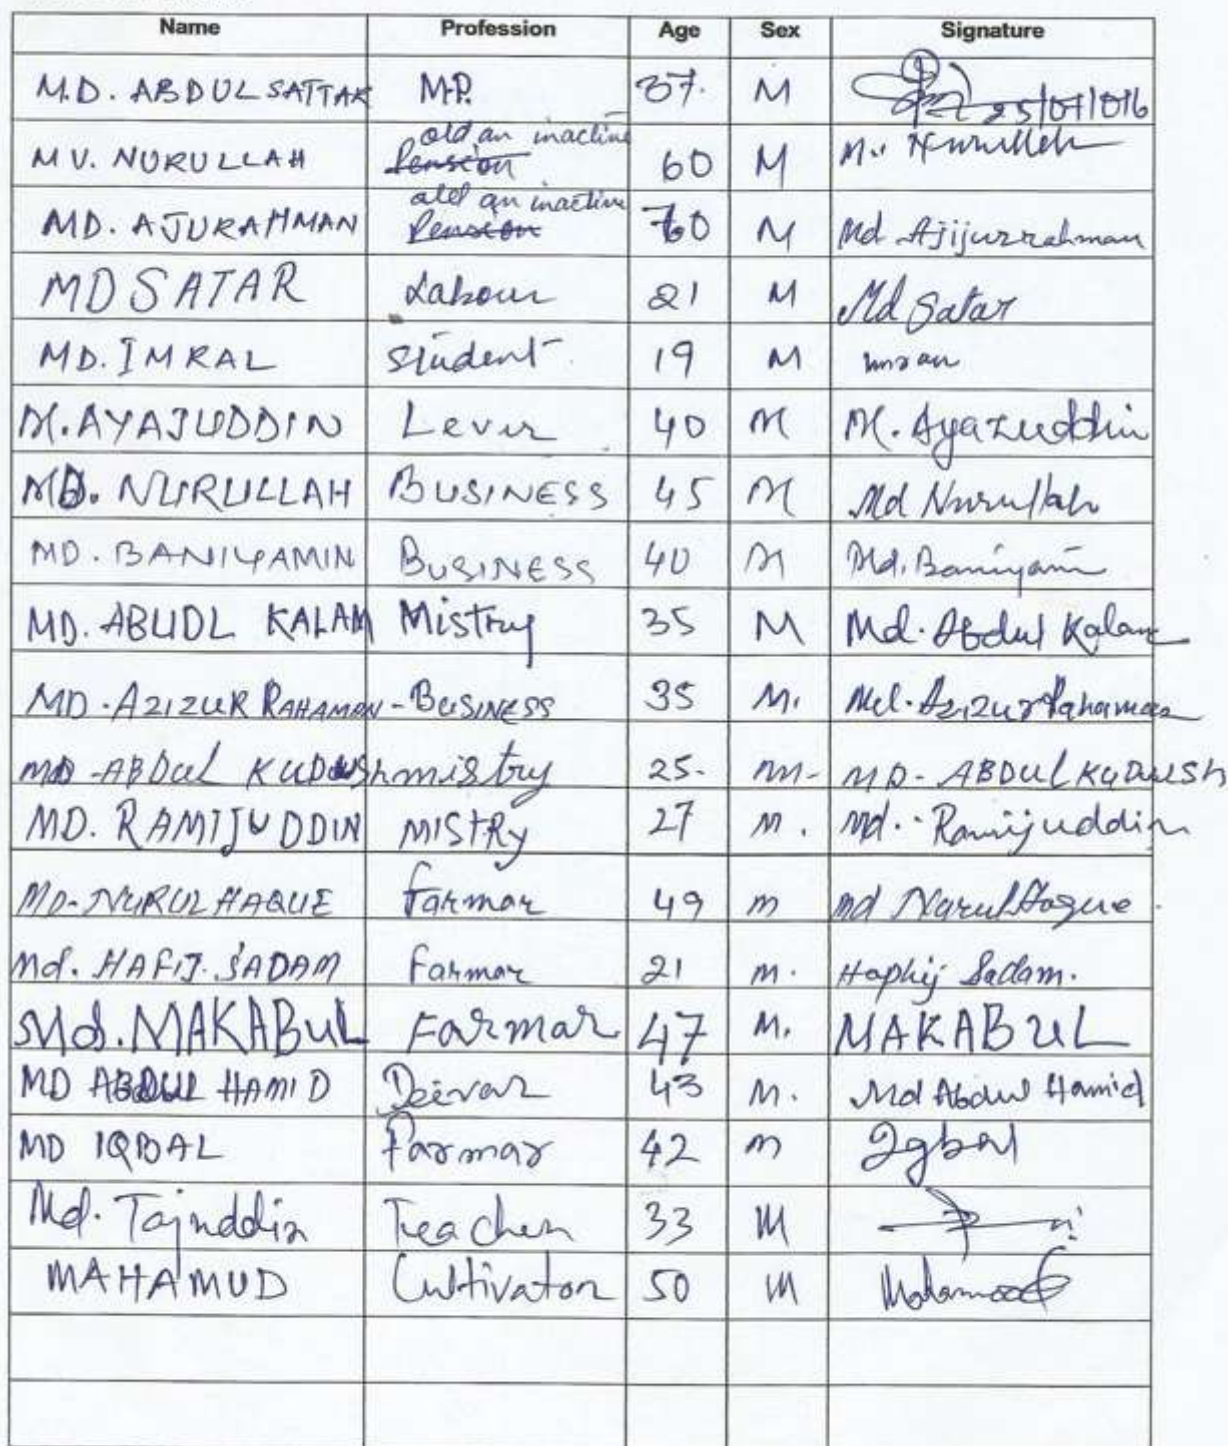 Name Profession Age Sex Signature
M.D. ABDUL SATTAR M.P. 37. M 25/07/016
old an inactive
MV. NURULLAH Pension 60 M Mv Nurullah
old an inactive
MD. AJURAHMAN Pension 70 M Md Ajijurrahman
MD SATAR Labour 21 M Md Satar
MD. IMRAL Student 19 M imran
M. AYAJUDDIN Lever 40 M M. Ayazuddin
MD. NURULLAH BUSINESS 45 M Md Nurullah
MD. BANIYAMIN BUSINESS 40 M Md. Baniyamin
MD. ABUDL KALAM Mistry 35 M Md. Abdul Kalam
MD. AZIZUR RAHAMAN - BUSINESS 35 M. Md. Azizur Rahaman
MD - ABDUL KUDUSH mistry 25. m - MD - ABDUL KUDUSH
MD. RAMIJUDDIN MISTRY 27 M. Md. Ramijuddin
MD - NURUL HAQUE Farmar 49 m md Narul Haque
Md. HAFIJ. SADAM Farmar 21 m. Haphij Sadam.
Md. MAKABUL Farmar 47 M. MAKABUL
MD ABDUL HAMID Deivar 43 M. Md Abdul Hamid
MD IQBAL Farmar 42 m Iqbal
Md. Tajuddin Teacher 33 M
MAHAMUD Cultivator 50 M Mahamood